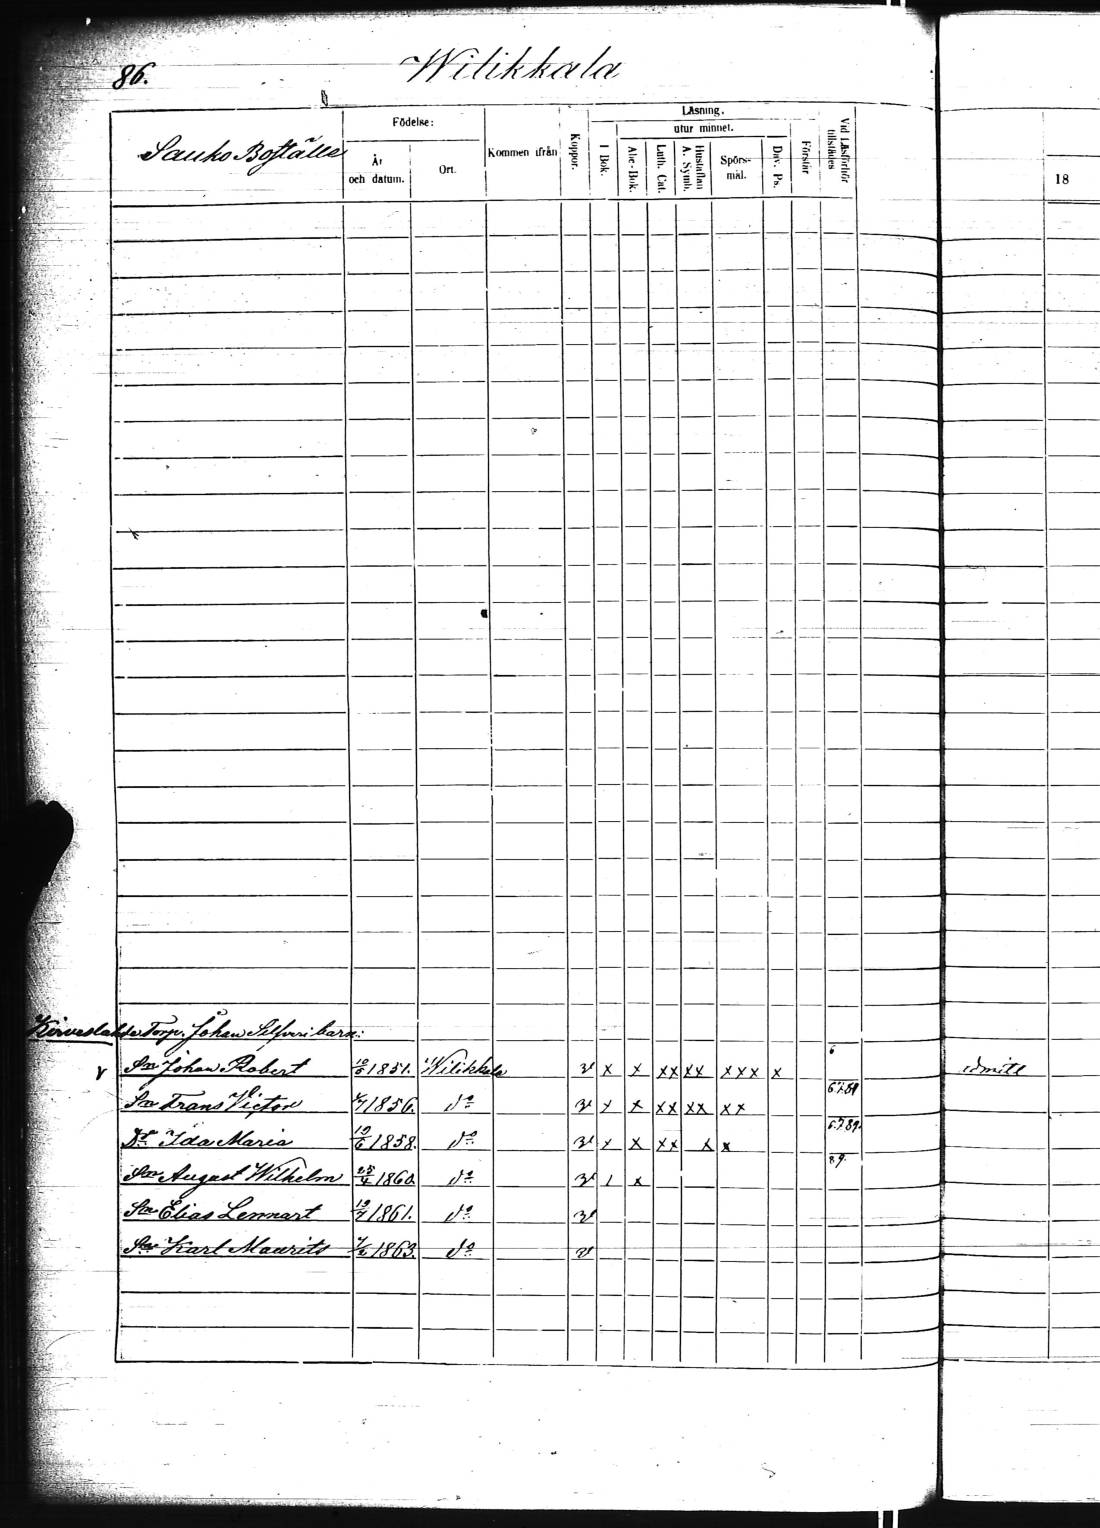 86. Wilikkala
Sauko Boställe
Födelse:
År och datum.
Ort.
Kommen ifrån
Koppor.
Läsning.
utur minnet.
I Bok.
Abc-Bok.
Luth. Cat.
Hustaflan A. Symb.
Spörsmål.
Dav. Ps.
Förstår
Vid Läsförhör tillstädes
18
Torp. Johan Silfveri barn:
v Son Johan Robert 10/6 1851. Wilikkala v x x xx xx xxx x 6 admitt
Son Frans Victor 1856. do v x x xx xx xx 6.7.89
Dr Ida Maria 19/6 1858. do v x x xx x x 6.7.89.
Son August Wilhelm 25/4 1860. do v 1 x 8.9.
Son Elias Lennart 19/7 1861. do v
Son Karl Maurits 1863. do v